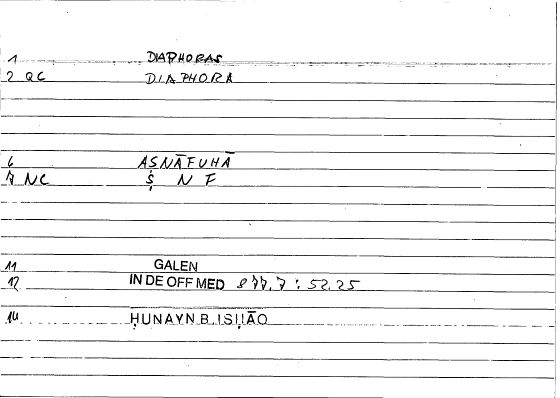 1 DIAPHORAS
2 QC DIAPHORA
6 AṢNĀFUHĀ
7 NC Ṣ N F
11 GALEN
12 IN DE OFF MED 877,7 : 52.25
14 ḤUNAYN B. ISḤĀQ